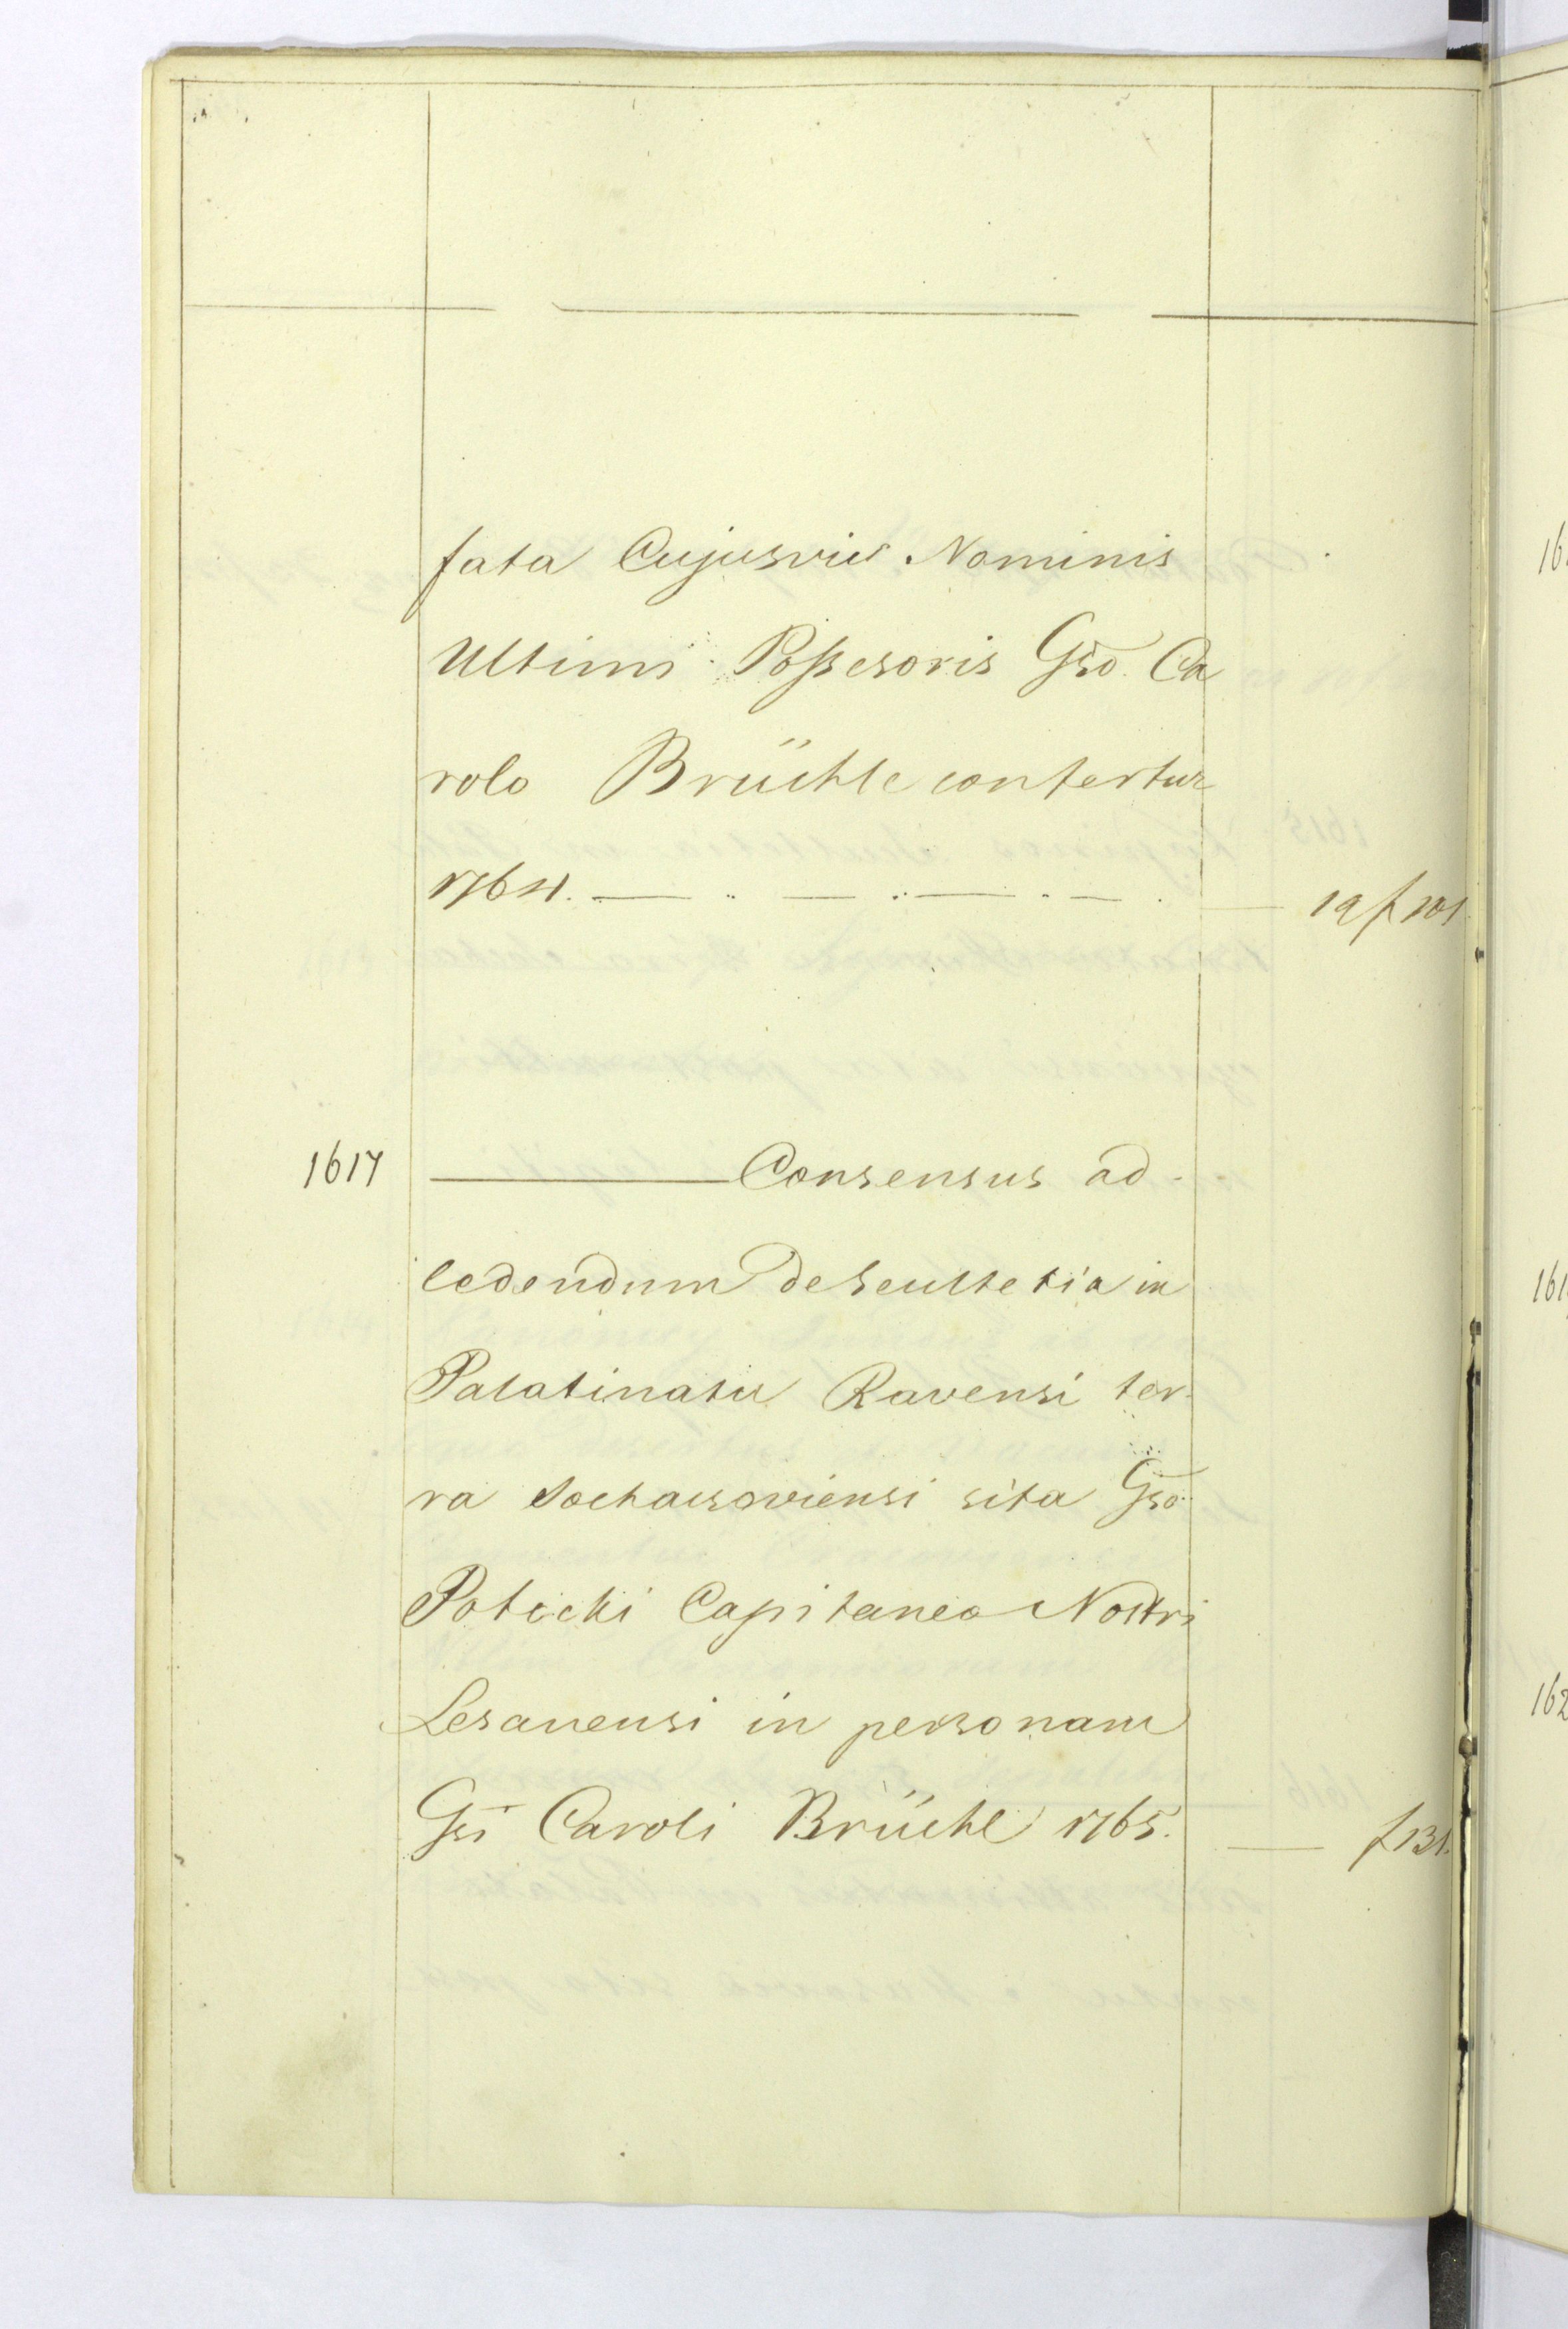 fata Cujusvis Nominis
Ultimi Poßesoris Gso. Ca
rolo Brüchle confertur
1764. — .. — .. — . — . — 19 f 101
1617 — Consensus ad
cedendum de Scultetia in
Palatinatu Ravensi ter-
ra Sochaczoviensi sita Gso
Potocki Capitaneo Nostri
Lesanensi in personam
Gsi Caroli Brüchl 1765. — f 131.